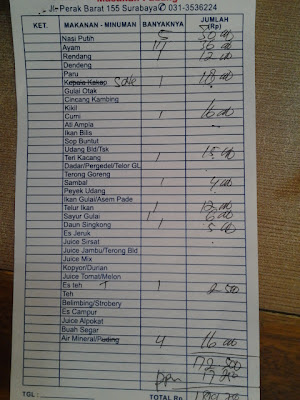 Jl-Perak Barat 155 Surabaya 031-3536224
KET. MAKANAN - MINUMAN BANYAKNYA JUMLAH (Rp)
Nasi Putih 5
Ayam
Rendang 1 12.000
Dendeng
Paru
Kepala Kakap 1 18.000
Gulai Otak
Cincang Kambing
Kikil
Cumi 1 16.000
Ati Ampla
Ikan Bilis
Sop Buntut
Udang Bld/Tsk
Teri Kacang 1
Dadar/Pergedel/Telor GL
Terong Goreng
Sambal 1 4.000
Peyek Udang
Ikan Gulai/Asem Pade
Telur Ikan
Sayur Gulai
Daun Singkong 1
Es Jeruk
Juice Sirsat
Juice Jambu/Terong Bld
Juice Mix
Kopyor/Durian
Juice Tomat/Melon
Es teh 1 2 500
Teh
Belimbing/Strobery
Es Campur
Juice Alpokat
Buah Segar
Air Mineral/Puding 4 16.000
172 500
ppn 17 250
TGL : TOTAL Rp